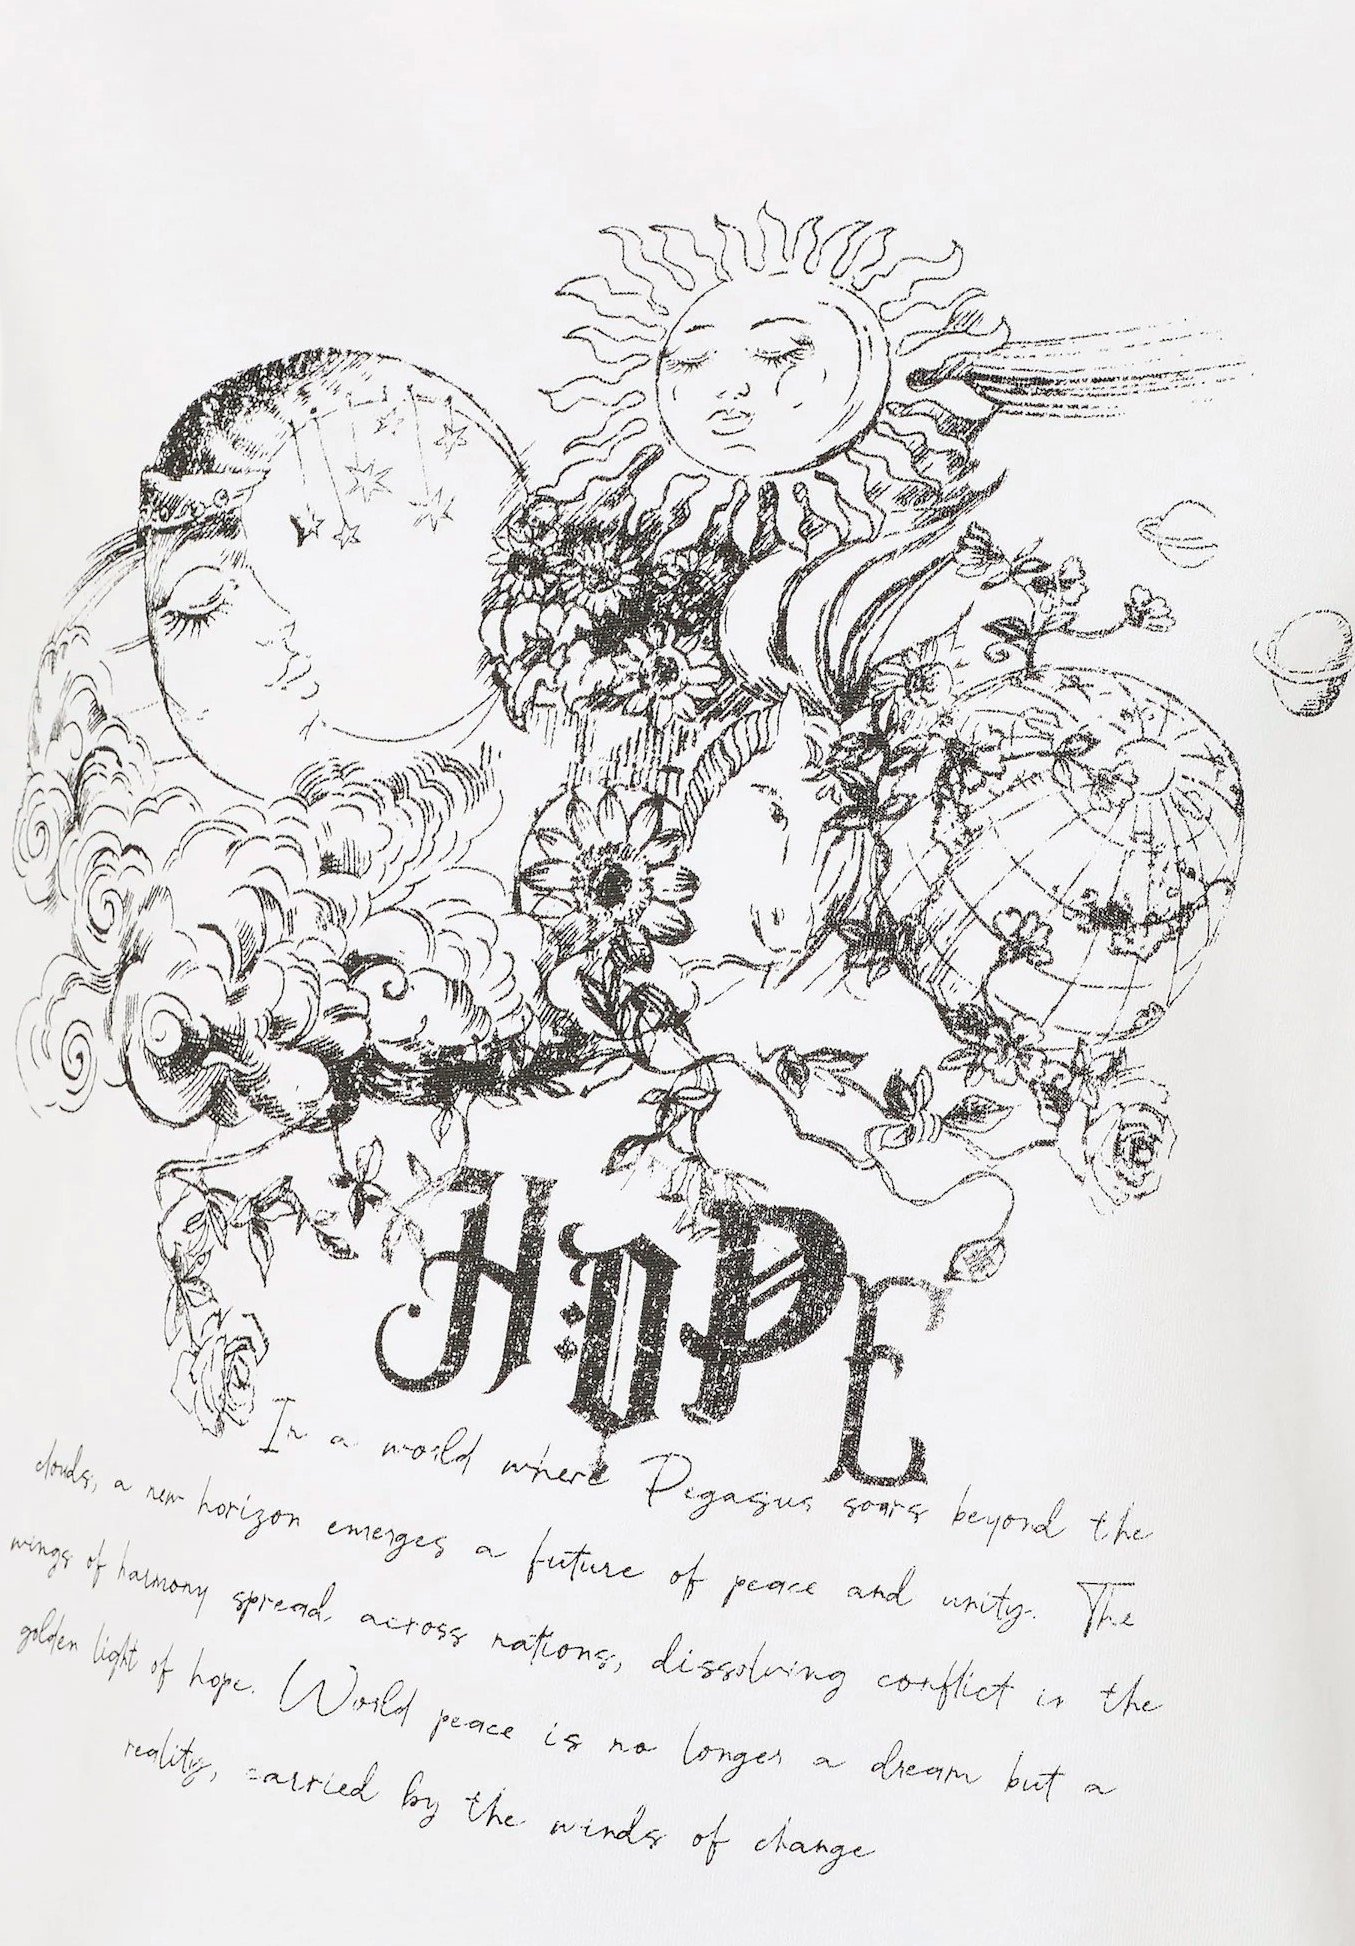 HOPE
In a world where Pegasus soars beyond the
clouds, a new horizon emerges a future of peace and unity. The
wings of harmony spread across nations, dissolving conflict in the
golden light of hope. World peace is no longer a dream but a
reality, carried by the winds of change